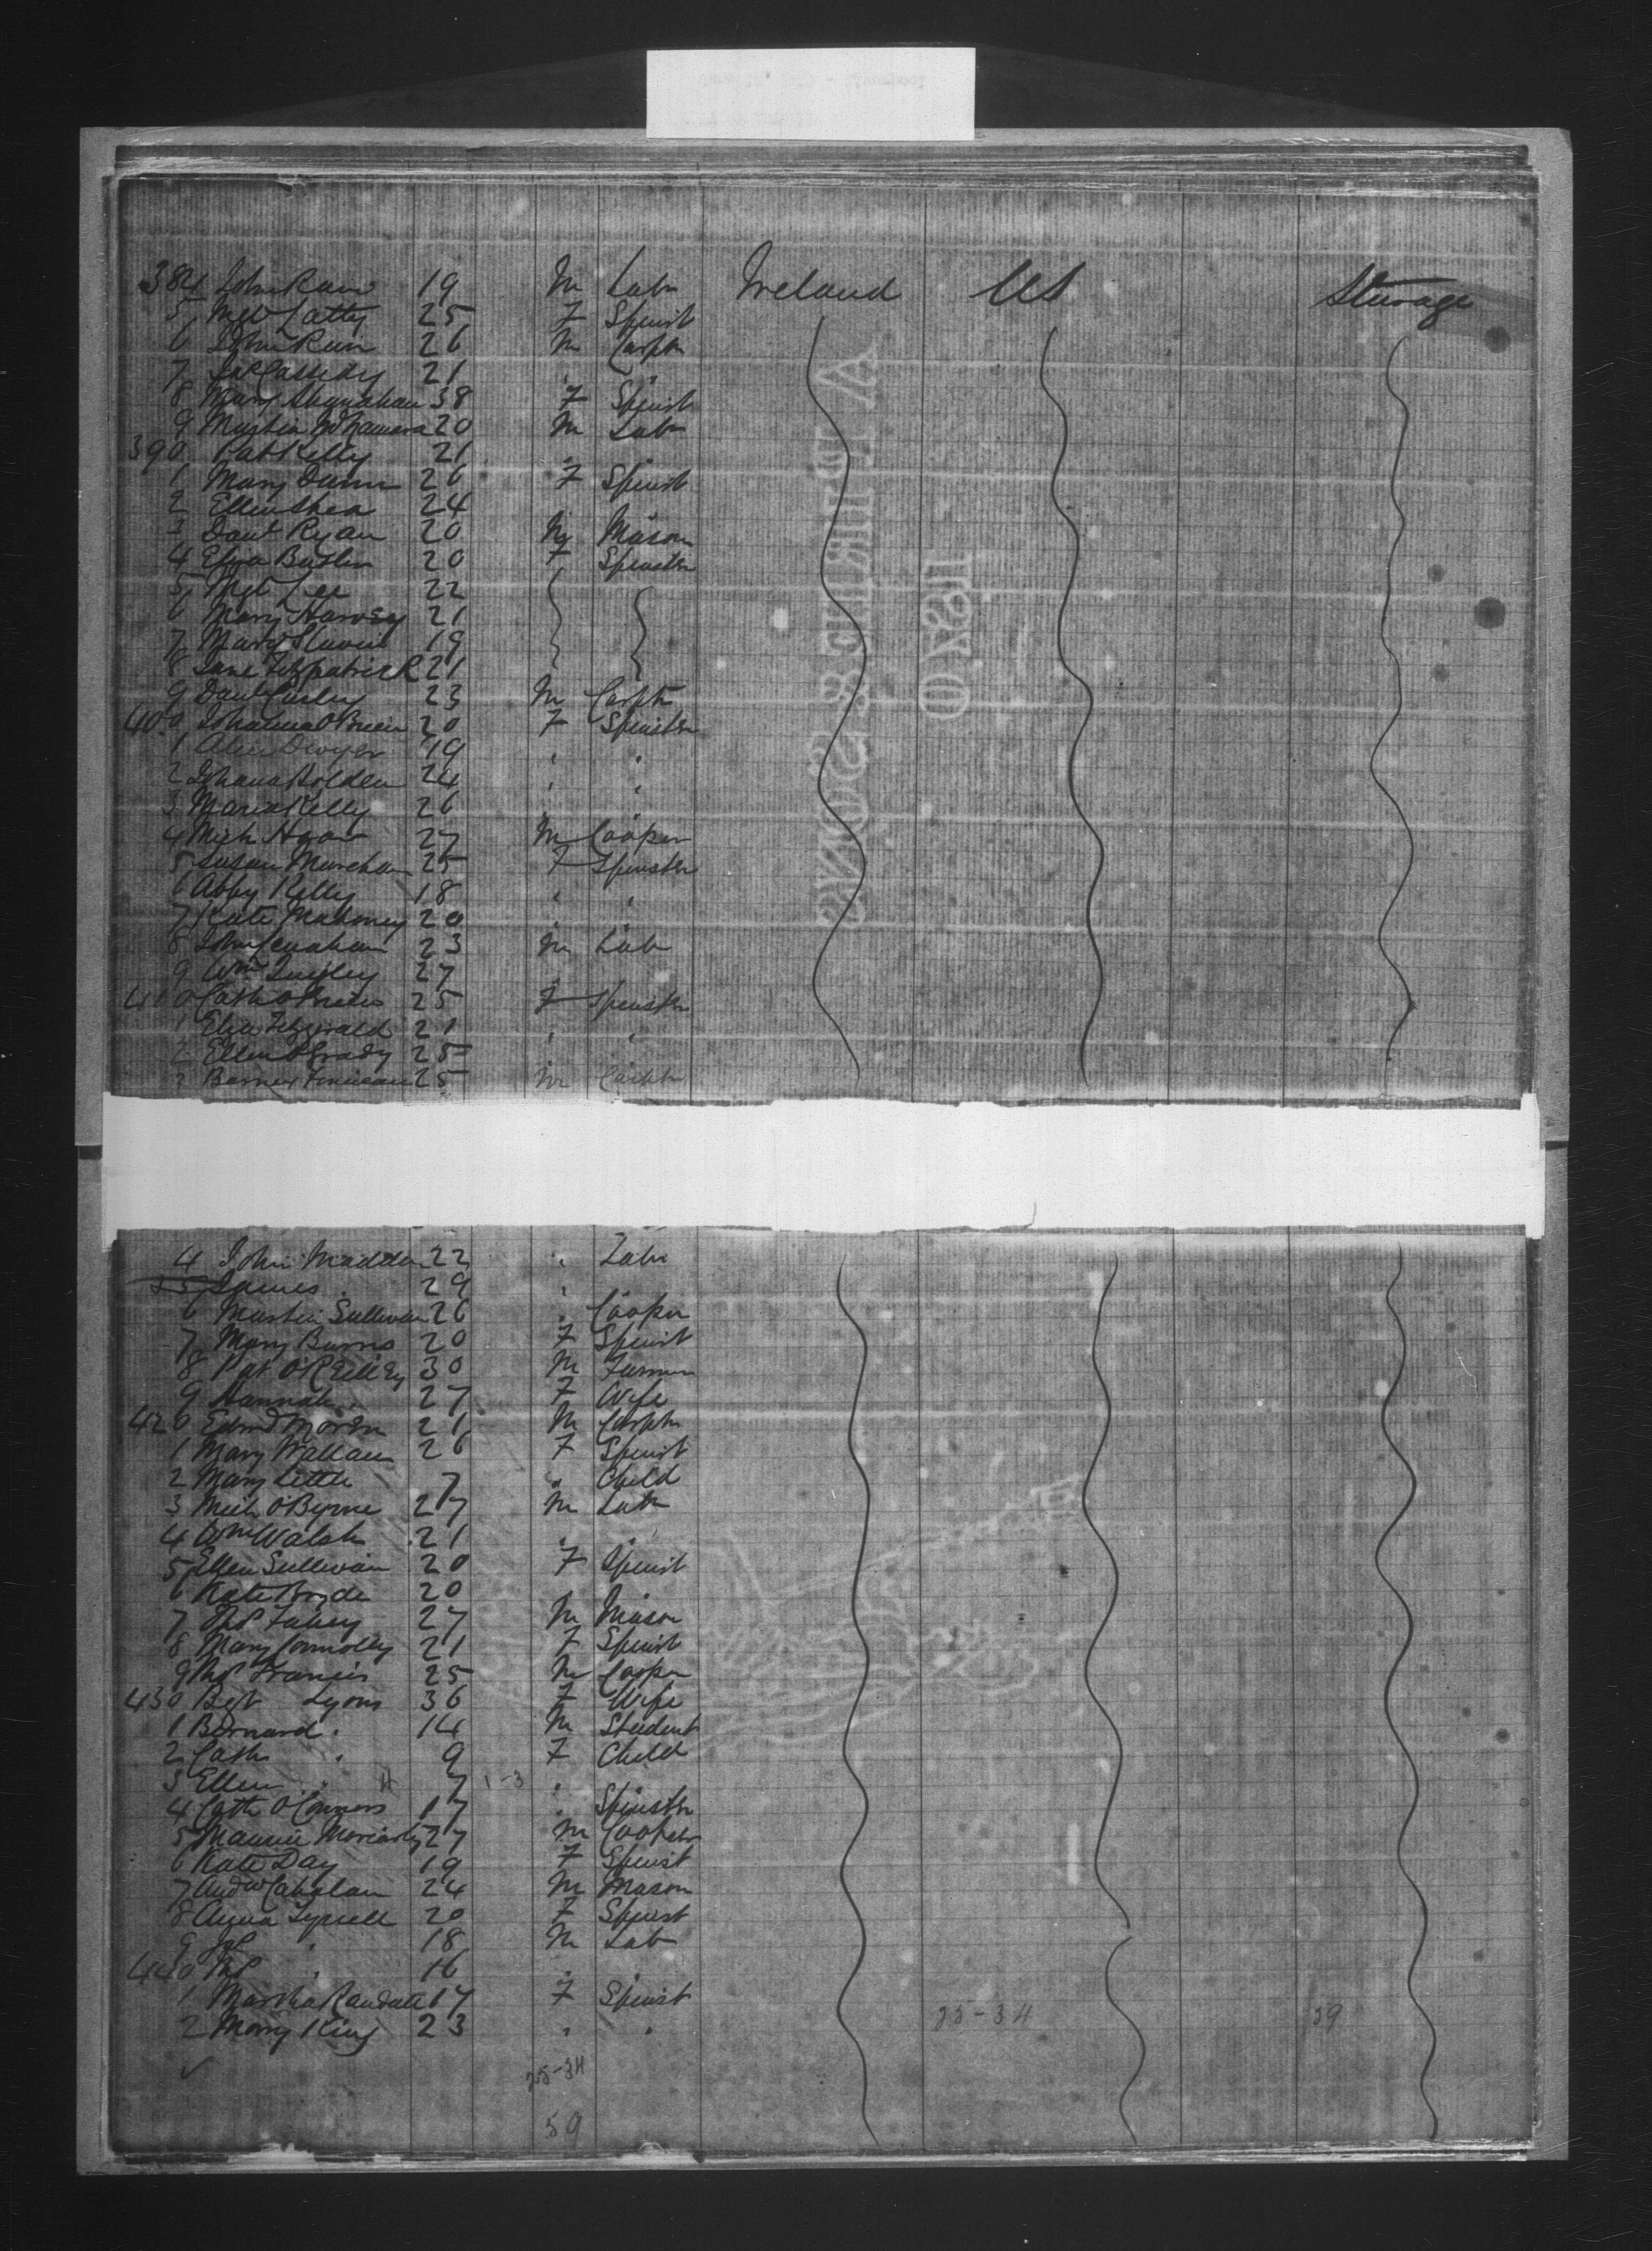 384 John 19 M Labr Ireland US Steerage
5 Mgt Latty 25 F Spinst
6 John 26 M Carptr
7 Jas Cassidy 21 " "
8 Mary Shanahan 38 F Spinst
9 Martin McNamara 20 M Labr
390 Pat Kelly 21 " "
1 Mary Dunn 26 F Spinst
2 Ellen Shea 24 " "
3 Danl Ryan 20 M Mason
4 Eliza Butler 20 F Spinstr
5 Mgt Lee 22
6 Mary Harvey 21
7 Mary 19
8 Jane Fitzpatrick 21
9 Danl 23 M Carptr
400 Johanna O'Brien 20 F Spinstr
1 Alice Dwyer 19 " "
2 Johana Holden 24 " "
3 Maria Kelly 26 " "
4 Mich 27 M Cooper
5 Susan 25 F Spinstr
6 Abby Kelly 18 " "
7 Kate Mahoney 20 " "
8 John Lenahan 23 M Lab
9 Wm Quigley 27 " "
410 Cath O'Brien 25 F Spinstr
1 Eliza Fitzgerald 21 " "
2 Ellen O'Grady 25 " "
3 Barney 25 M Carptr
4 John Madden 22 " Labr
5 James " 29 " "
6 Martin Sullivan 26 " Cooper
7 Mary Burns 20 F Spinst
8 Pat O'Reilly 30 M Farmer
9 Hannah " 27 F Wife
420 Edmd Moran 21 M Carptr
1 Mary Wallace 26 F Spinst
2 Mary Little 7 " Child
3 Mich O'Byrne 27 M Labr
4 Wm Walsh 21 " "
5 Ellen Sullivan 20 F Spinst
6 Kate 20 " "
7 Ths Fahey 27 M Mason
8 Mary Connolly 21 F Spinst
9 Ths Francis 25 M Cooper
430 Bgt Lyons 36 F Wife
1 Bernard " 14 M Student
2 Cath " 9 F Child
3 Ellen " H 7 1-3 " "
4 Cath O'Connors 17 " Spinstr
5 Maurice Moriarty 27 M Cooper
6 Kate Day 19 F Spinst
7 Andw Cahalan 24 M Mason
8 Anna Tyrrell 20 F Spinst
9 Jos " 18 M Lab
440 Ths " 16 " "
1 Martha Randall 17 F Spinst 25-34 59
2 Mary King 23 " "
25-34
59